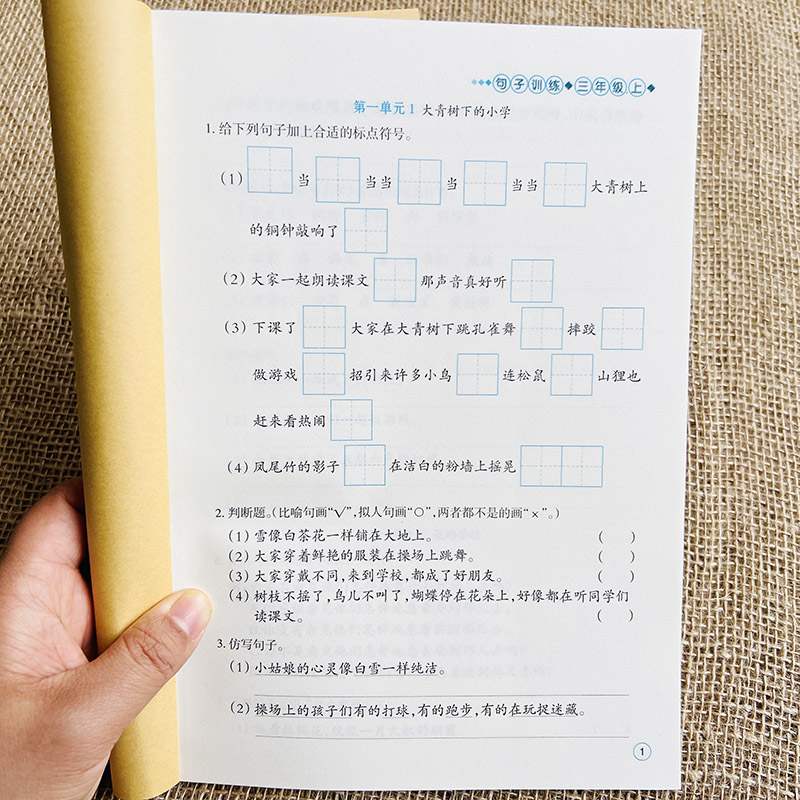 句子训练◆三年级上
第一单元 1 大青树下的小学
1. 给下列句子加上合适的标点符号。
(1) 当 当当 当 当当 大青树上
的铜钟敲响了
(2) 大家一起朗读课文 那声音真好听
(3) 下课了 大家在大青树下跳孔雀舞 摔跤
做游戏 招引来许多小鸟 连松鼠 山狸也
赶来看热闹
(4) 凤尾竹的影子 在洁白的粉墙上摇晃
2. 判断题。(比喻句画“√”,拟人句画“○”,两者都不是的画“×”。)
(1) 雪像白茶花一样铺在大地上。 ( )
(2) 大家穿着鲜艳的服装在操场上跳舞。 ( )
(3) 大家穿戴不同,来到学校,都成了好朋友。 ( )
(4) 树枝不摇了,鸟儿不叫了,蝴蝶停在花朵上,好像都在听同学们
读课文。 ( )
3. 仿写句子。
(1) 小姑娘的心灵像白雪一样纯洁。
(2) 操场上的孩子们有的打球,有的跑步,有的在玩捉迷藏。
1